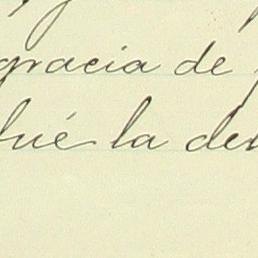 gracia de
fué la de